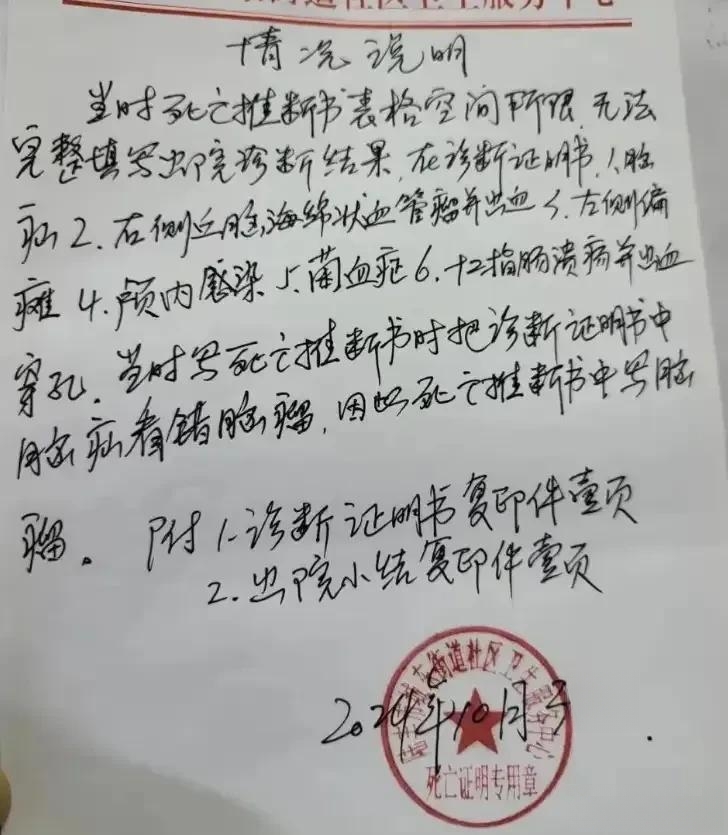 街道社区卫生服务中心
情况说明
当时死亡推断书表格空间所限,无法
完整填写出院诊断结果,在诊断证明书,1.脑
疝2.右侧丘脑海绵状血管瘤并出血3.左侧偏
瘫4.颅内感染5.菌血症6.十二指肠溃疡并出血
穿孔.当时写死亡推断书时把诊断证明书中
脑疝看错脑瘤,因此死亡推断书中写脑
瘤。附1.诊断证明书复印件壹页
2.出院小结复印件壹页
街道社区卫生服务中心
2024年10月
死亡证明专用章